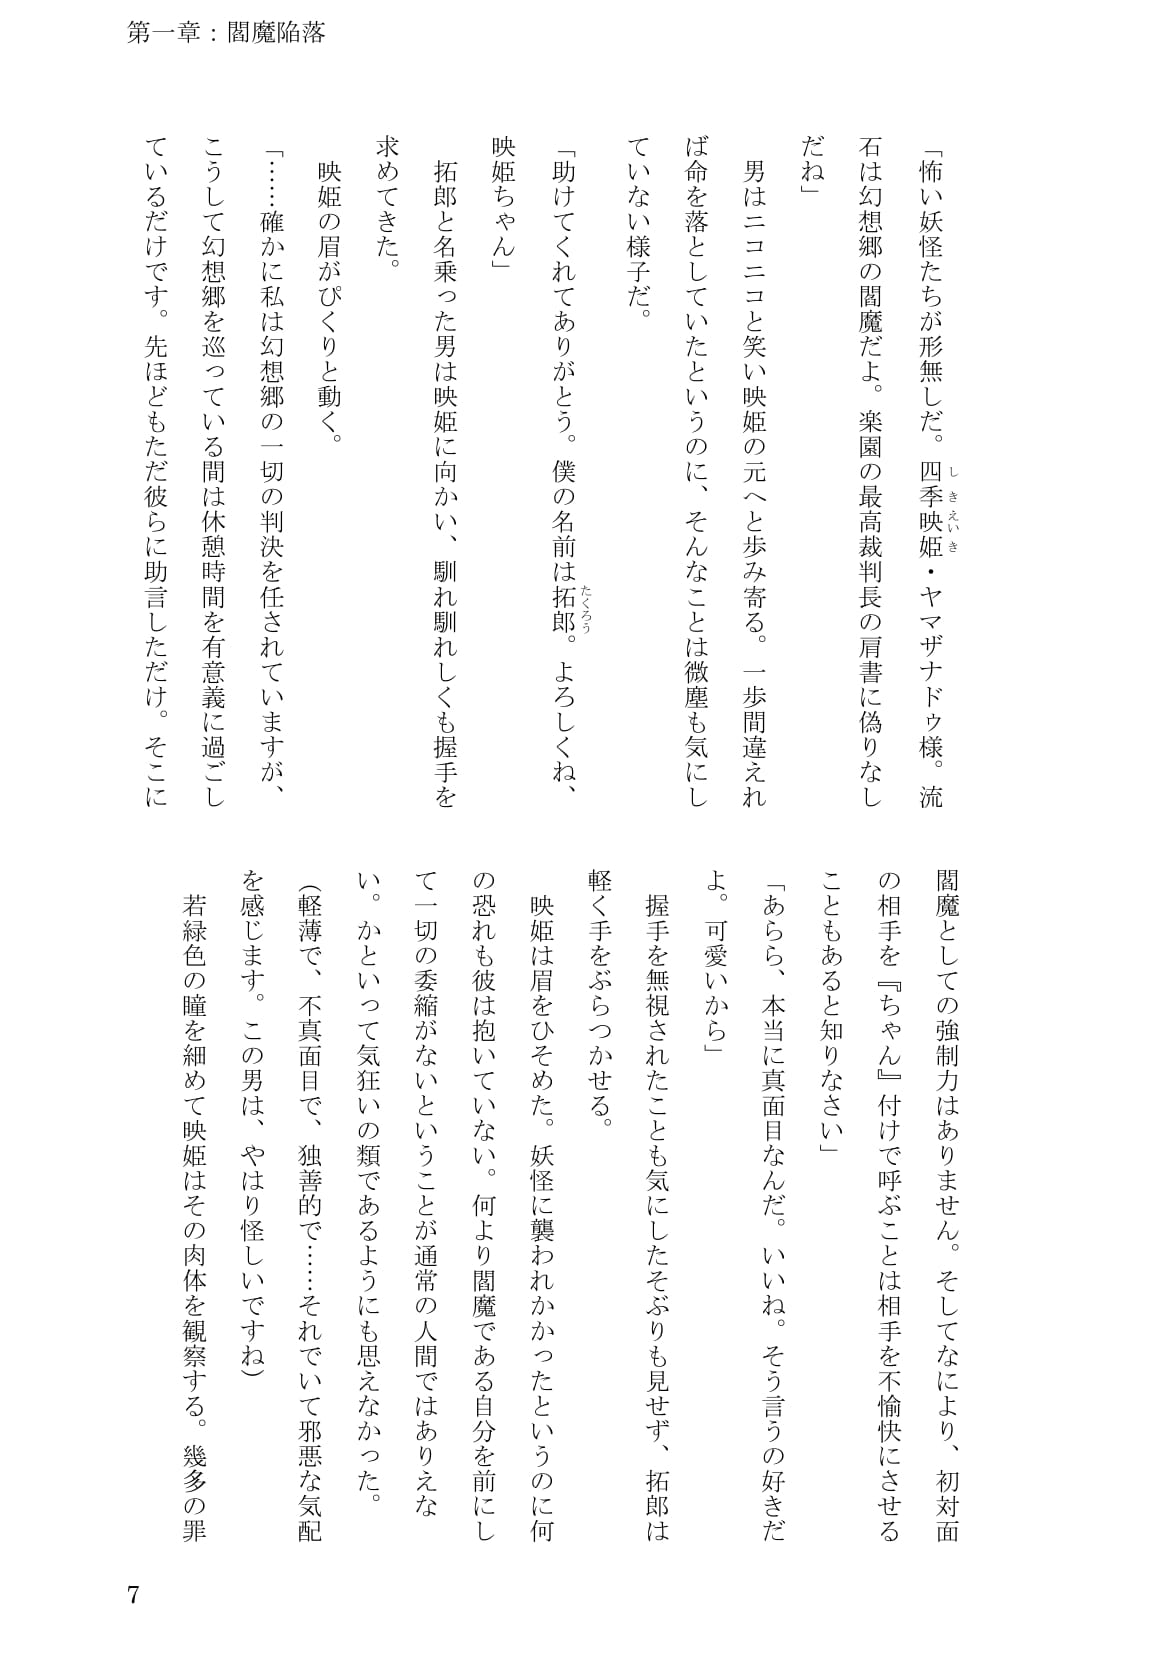 第一章：閻魔陥落
「怖い妖怪たちが形無しだ。四季映姫・ヤマザナドゥ様。流
しきえいき
石は幻想郷の閻魔だよ。楽園の最高裁判長の肩書に偽りなし
だね」
男はニコニコと笑い映姫の元へと歩み寄る。一歩間違えれ
ば命を落としていたというのに、そんなことは微塵も気にし
ていない様子だ。
「助けてくれてありがとう。僕の名前は拓郎。よろしくね、
たくろう
映姫ちゃん」
拓郎と名乗った男は映姫に向かい、馴れ馴れしくも握手を
求めてきた。
映姫の眉がぴくりと動く。
「……確かに私は幻想郷の一切の判決を任されていますが、
こうして幻想郷を巡っている間は休憩時間を有意義に過ごし
ているだけです。先ほどもただ彼らに助言しただけ。そこに
閻魔としての強制力はありません。そしてなにより、初対面
の相手を『ちゃん』付けで呼ぶことは相手を不愉快にさせる
こともあると知りなさい」
「あらら、本当に真面目なんだ。いいね。そう言うの好きだ
よ。可愛いから」
握手を無視されたことも気にしたそぶりも見せず、拓郎は
軽く手をぶらつかせる。
映姫は眉をひそめた。妖怪に襲われかかったというのに何
の恐れも彼は抱いていない。何より閻魔である自分を前にし
て一切の委縮がないということが通常の人間ではありえな
い。かといって気狂いの類であるようにも思えなかった。
（軽薄で、不真面目で、独善的で……それでいて邪悪な気配
を感じます。この男は、やはり怪しいですね）
若緑色の瞳を細めて映姫はその肉体を観察する。幾多の罪
7